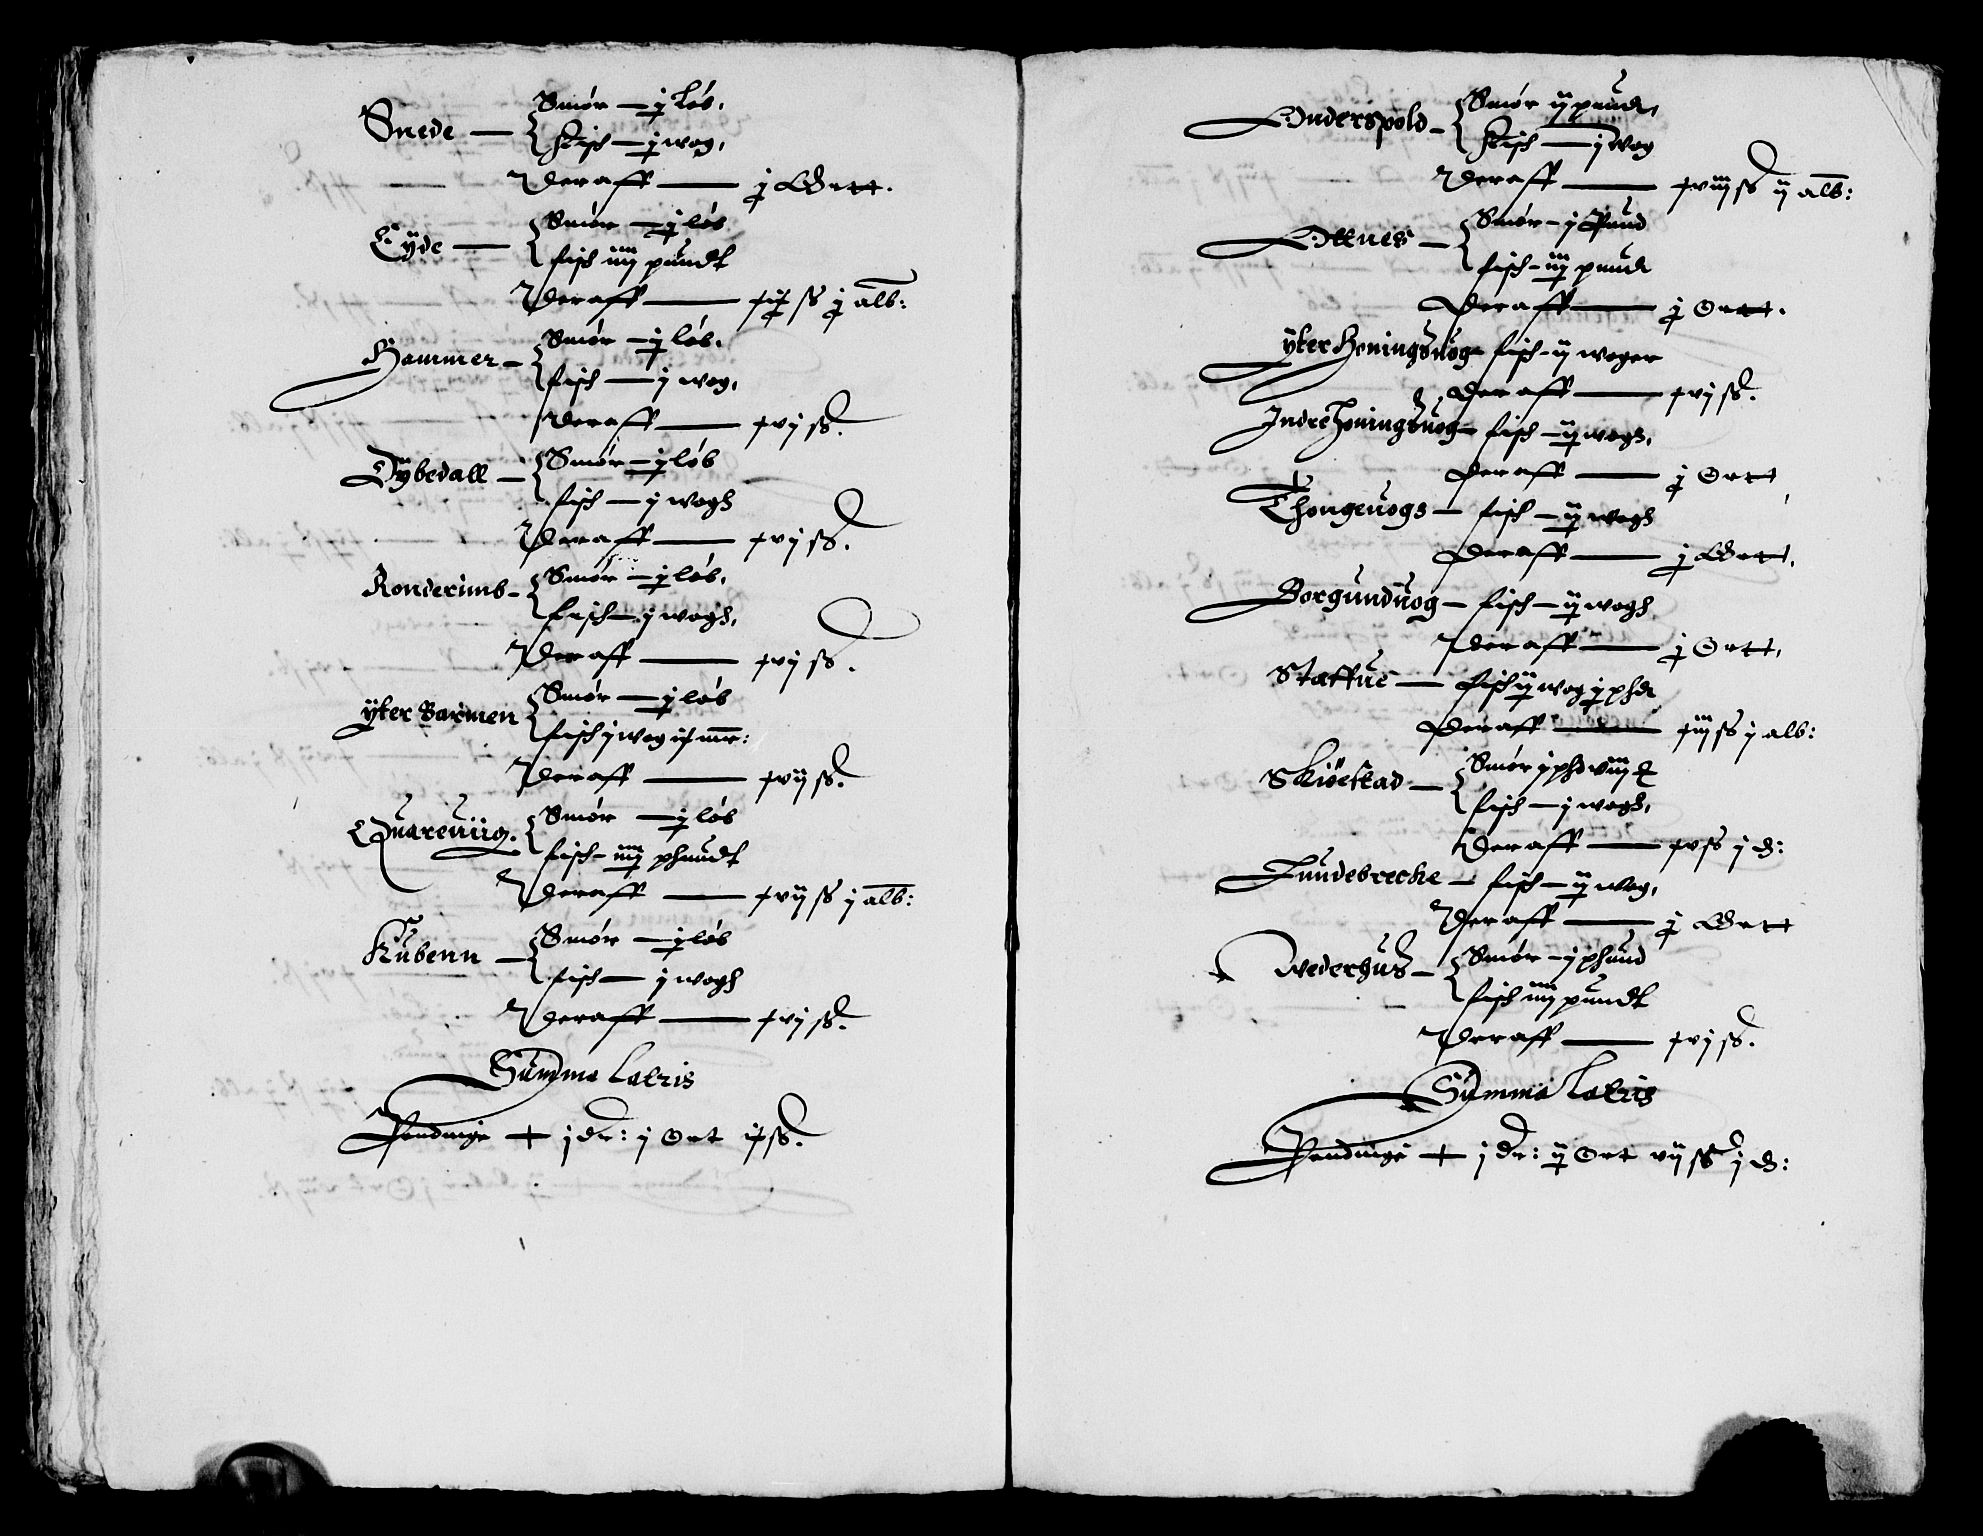 Snede — Smör — j löb.
fisch — j wog,
Deraff — j Ortt.
Eÿde — Smör — j löb
fisch iiij pundt
Deraff — xix ß j alb:
Hammer — Smör — j löb.
fisch — j wog,
Deraff — xvj ß.
Dÿbedall — Smör — j löb
fisch — j wogh
Deraff — xvj ß.
Ronderimb — Smör — j löb,
fisch — j wogh,
Deraff — xvj ß.
ÿter Barmen Smör — j löb
fisch j wog ix mr:
Deraff — xvij ß.
Quareuiig. Smör — j löb
fisch — iiij phundt
Deraff — xvij ß j alb:
Kubenn — Smör — j löb
fisch — j wogh
Deraff — xvj ß.
Summa Latris
Pendinge + j dr: j Ort ix ß.
Onderspold — Smör ij pundt,
fisch — j wog
Deraff — xviij ß ij alb:
Ottnes — Smör — j Pund
fisch — iij pundt
Deraff — j Ort.
ÿter Honingsuog — fisch — ij woger
Deraff — xvj ß.
Indre Honingsuog — fisch — ij wogh,
Deraff — j Ortt
Thongeuogs — fisch — ij wogh
Deraff — j Ortt.
Borgunduog — fisch — ij wogh
Deraff — j Ortt,
Stattue — fisch ij wog j phd
Deraff — xiij ß j alb:
Skiöestad — Smör j phd viij
fisch — j wogh,
Deraff — xv ß j d:
Lundebrecke — fisch — ij wog,
Deraff — j Ortt
Wederhus — Smör — j phund
fisch iiij pundt
Deraff — xvj ß.
Summa Latris
Pendinge + j dr: ij Ort vij ß j d: